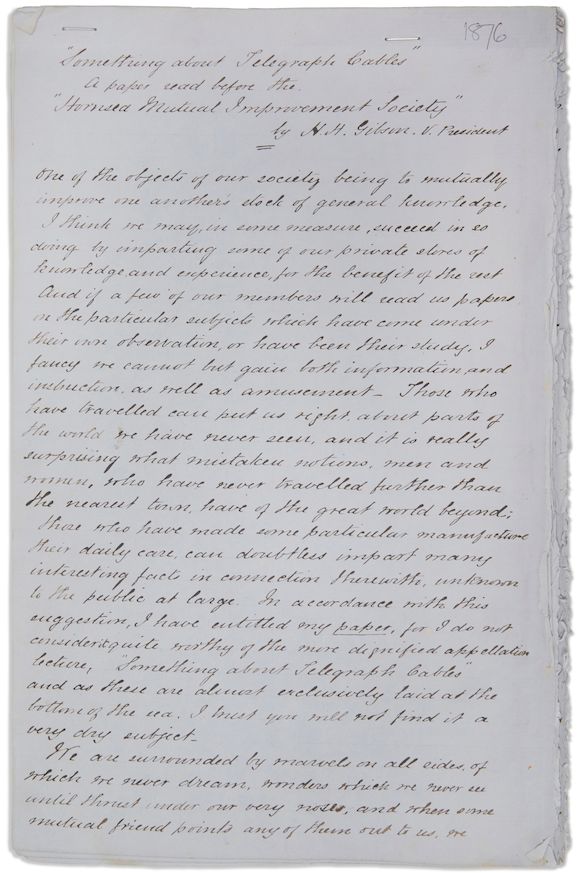 1876
"Something about Telegraph Cables"
A paper read before the.
"Hornsea Mutual Improvement Society"
by H. H. Gibson. V. President
One of the objects of our society being to mutually
improve one another's stock of general knowledge.
I think we may, in some measure, succeed in so
doing by imparting some of our private stores of
knowledge and experience, for the benefit of the rest
And if a few of our members will read us papers
on the particular subjects which have come under
their own observation, or have been their study, I
fancy we cannot but gain both information and
instruction, as well as amusement – Those who
have travelled can put us right about parts of
the world we have never seen, and it is really
surprising what mistaken notions, men and
women, who have never travelled further than
the nearest town, have of the great world beyond;
Those who have made some particular manufacture
their daily care, can doubtless impart many
interesting facts in connection therewith, unknown
to the public at large. In accordance with this
suggestion, I have entitled my paper, for I do not
consider it quite worthy of the more dignified appellation
lecture, "Something about Telegraph Cables"
and as these are almost exclusively laid at the
bottom of the sea, I trust you will not find it a
very dry subject –
We are surrounded by marvels on all sides, of
which we never dream, wonders which we never see
until thrust under our very noses, and when some
mutual friend points any of them out to us, we